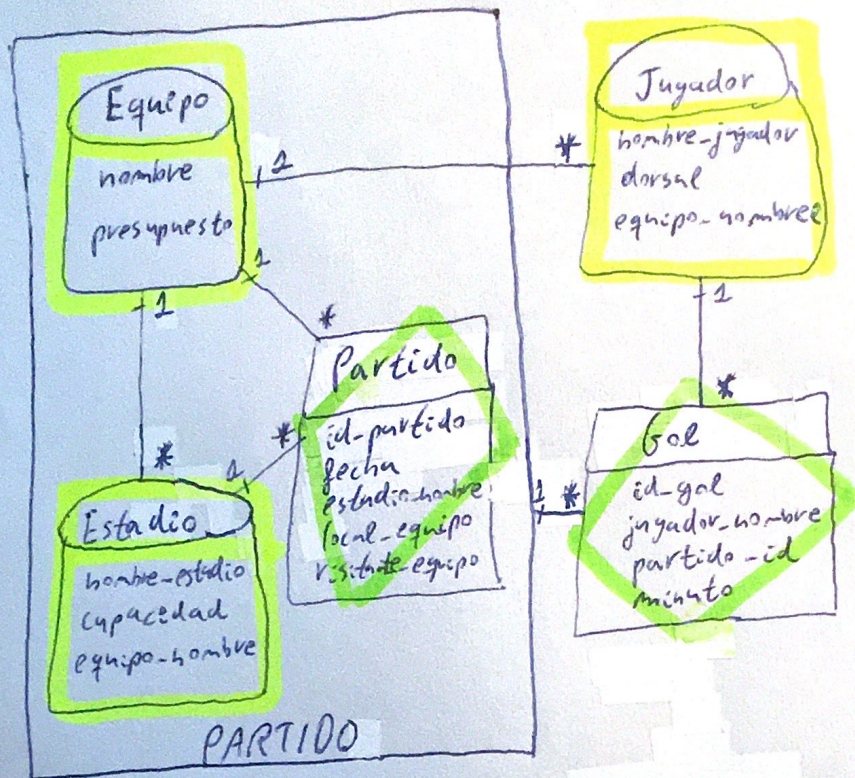 Equipo
nombre
presupuesto
1
*
Jugador
nombre_jugador
dorsal
equipo_nombre
1
1
*
Partido
id_partido
fecha
estadio_nombre
local_equipo
visitante_equipo
1
*
1
*
Estadio
nombre_estadio
capacidad
equipo_nombre
1
*
Gol
id_gol
jugador_nombre
partido_id
minuto
1
*
PARTIDO